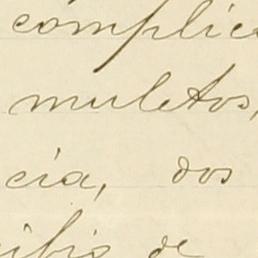 complice
muletos,
cia, dos
ibio de